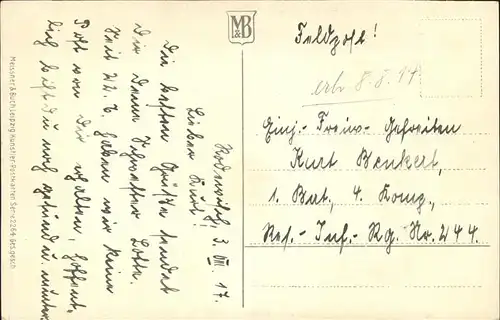 Meissner & Buch, Leipzig Künstler-Postkarten Serie 2264 Ges. gesch.
M&B
Rodewisch, 3. VIII. 17.
Lieber Kurt!
Die besten Grüße sendet
Dir Deine Schwester Lotte.
Seit 22.6. haben wir keine
Post von Dir erhalten, hoffent-
lich bist Du noch gesund u. munter.
Feldpost!
erh. 8.8.17
Einj.-Freiw.-Gefreiten
Kurt Benkert,
1. Bat., 4. Komp.,
Res.-Inf.-Rg. Nr. 244.